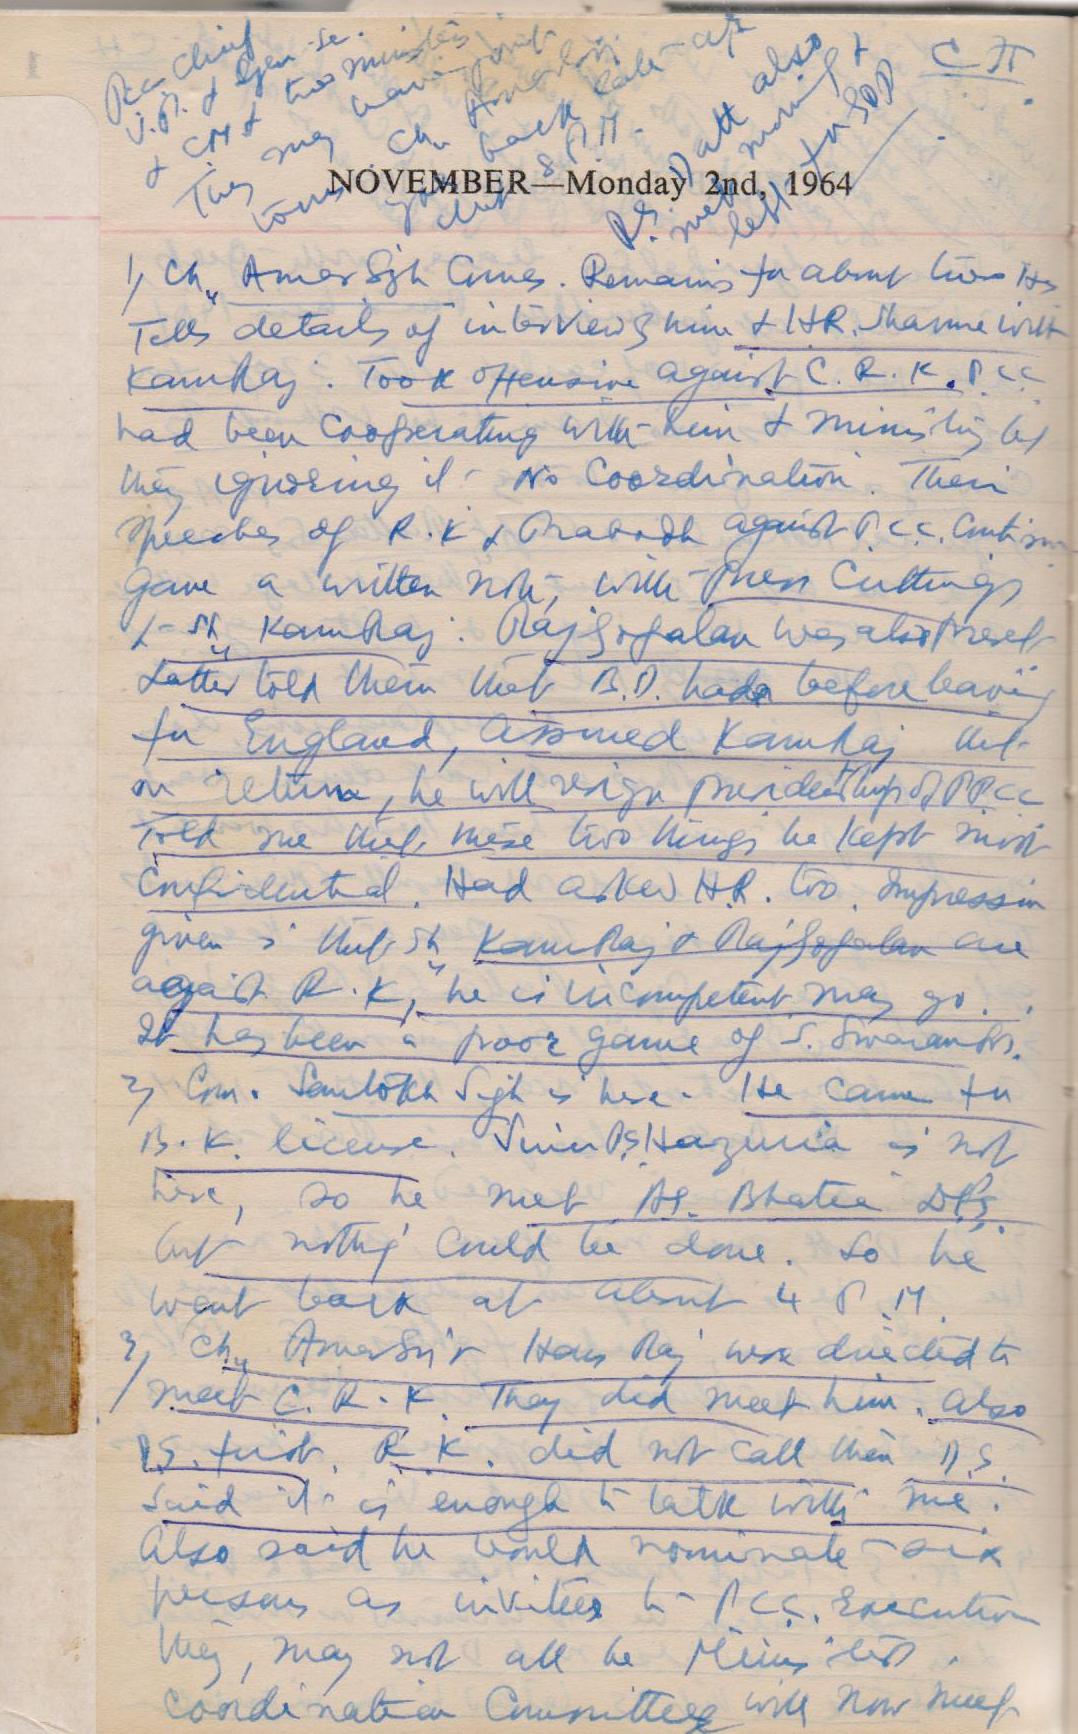 CH.
PCC Chief
V.P. & Gen-Se.
& CM & two ministers
They may
Ch.
back
8 P.M.
P.S. Datt also
met morning &
left for
NOVEMBER—Monday 2nd, 1964
1) Ch. Amar Sigh Comes. Remains for about two Hrs
Tells details of interview of him & H.R. Sharma with
KamRaj. Took offensive against C.R.K. P.C.C
had been Cooperating with him & Ministry but
they ignoring it. No Coordination. Then
speeches of R.K & Prabodh against P.C.C. Continue
Gave a written note, with Press Cuttings
to Sh. KamRaj. RajGopalan was also present
Latter told them that B.D. had before leaving
for England, assured KamRaj that
on return, he will resign presidentship of PPCC
Told me that these two things he kept most
Confidential. Had asked H.R. too. Impression
given is that Sh. KamRaj & RajGopalan are
against R.K, he is incompetent may go.
It has been a poor game of S. Swaran S.
2) Com. Santokh Sigh is here. He came for
B.K. license. Hazuria is not
here, so he met Bhatia
but nothing could be done. So he
went back at about 4 P.M.
3) Ch. Amar S. & Hans Raj were directed to
meet C.R.K. They did meet him. Also
D.S. first. R.K. did not call them D.S.
said it is enough to talk with me.
Also said he would nominate six
persons as invitees to PCC. Executive
they, may not all be Ministers.
Coordination Committee will now meet